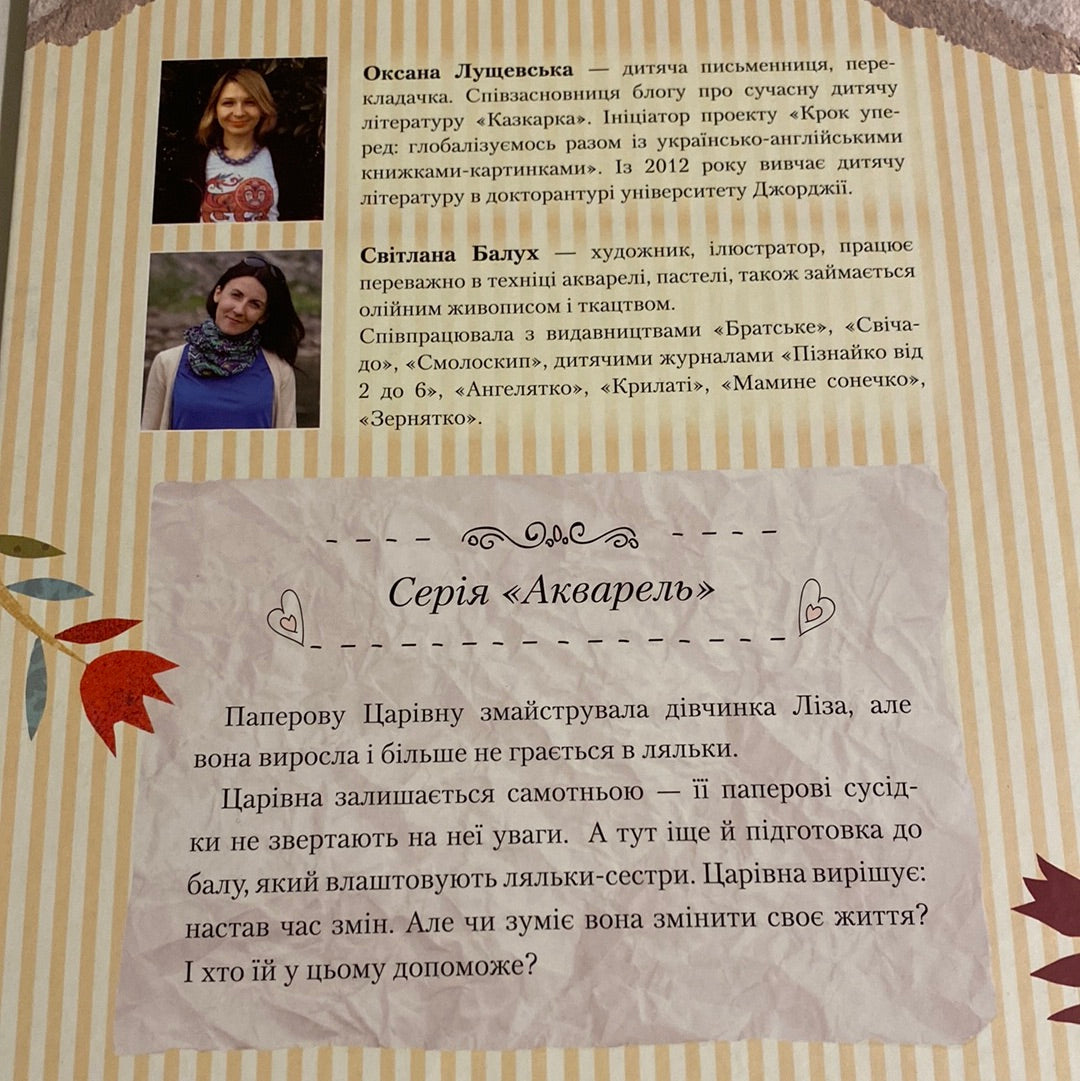 Оксана Лущевська — дитяча письменниця, пере-
кладачка. Співзасновниця блогу про сучасну дитячу
літературу «Казкарка». Ініціатор проекту «Крок упе-
ред: глобалізуємось разом із українсько-англійськими
книжками-картинками». Із 2012 року вивчає дитячу
літературу в докторантурі університету Джорджії.
Світлана Балух — художник, ілюстратор, працює
переважно в техніці акварелі, пастелі, також займається
олійним живописом і ткацтвом.
Співпрацювала з видавництвами «Братське», «Свіча-
до», «Смолоскип», дитячими журналами «Пізнайко від
2 до 6», «Ангелятко», «Крилаті», «Мамине сонечко»,
«Зернятко».
Серія «Акварель»
Паперову Царівну змайструвала дівчинка Ліза, але
вона виросла і більше не грається в ляльки.
Царівна залишається самотньою — її паперові сусід-
ки не звертають на неї уваги. А тут іще й підготовка до
балу, який влаштовують ляльки-сестри. Царівна вирішує:
настав час змін. Але чи зуміє вона змінити своє життя?
І хто їй у цьому допоможе?